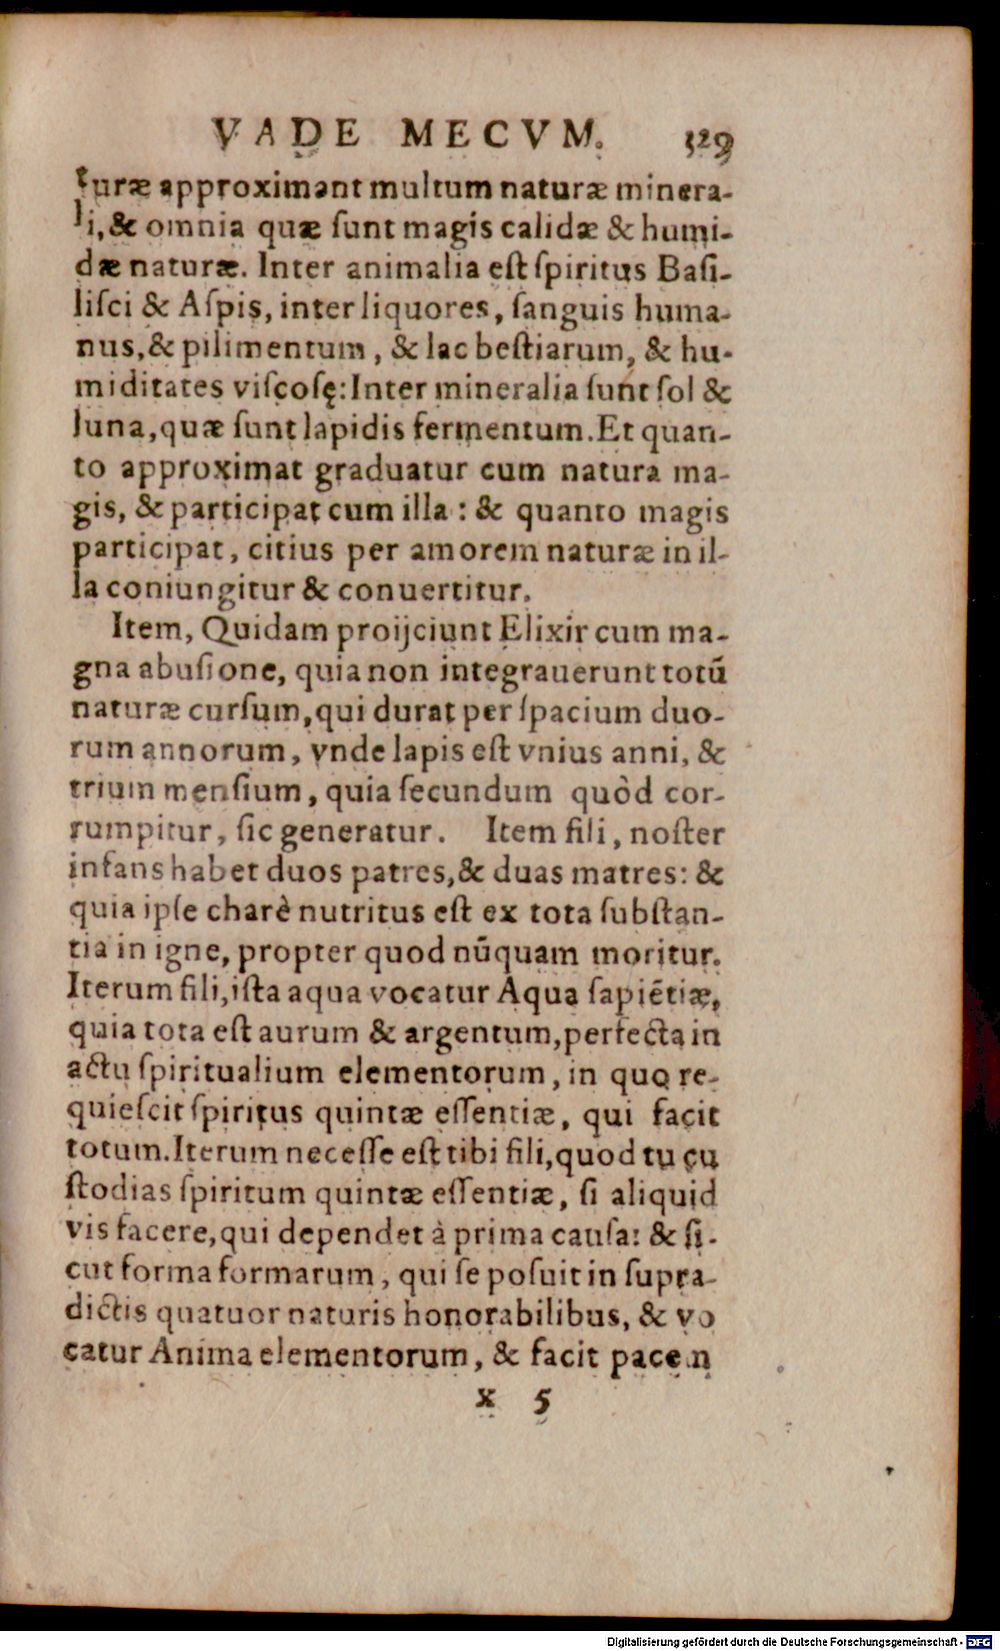 VADE MECVM. 329
turæ approximant multum naturæ minera-
li, & omnia quæ ſunt magis calidæ & humi-
dæ naturæ. Inter animalia eſt ſpiritus Baſi-
liſci & Aſpis, inter liquores, ſanguis huma-
nus, & pilimentum, & lac beſtiarum, & hu-
miditates viſcoſę: Inter mineralia ſunt ſol &
luna, quæ ſunt lapidis fermentum. Et quan-
to approximat graduatur cum natura ma-
gis, & participat cum illa: & quanto magis
participat, citius per amorem naturæ in il-
la coniungitur & conuertitur.
Item, Quidam proijciunt Elixir cum ma-
gna abuſione, quia non integrauerunt totū
naturæ curſum, qui durat per ſpacium duo-
rum annorum, vnde lapis eſt vnius anni, &
trium menſium, quia ſecundum quòd cor-
rumpitur, ſic generatur. Item fili, noſter
infans habet duos patres, & duas matres: &
quia ipſe charè nutritus eſt ex tota ſubſtan-
tia in igne, propter quod nūquam moritur.
Iterum fili, iſta aqua vocatur Aqua ſapiētiæ,
quia tota eſt aurum & argentum, perfecta in
actu ſpiritualium elementorum, in quo re-
quieſcit ſpiritus quintæ eſſentiæ, qui facit
totum. Iterum neceſſe eſt tibi fili, quod tu cu
ſtodias ſpiritum quintæ eſſentiæ, ſi aliquid
vis facere, qui dependet à prima cauſa: & ſi-
cut forma formarum, qui ſe poſuit in ſupra-
dictis quatuor naturis honorabilibus, & vo
catur Anima elementorum, & facit pacem
x 5
Digitalisierung gefördert durch die Deutsche Forschungsgemeinschaft - DFG